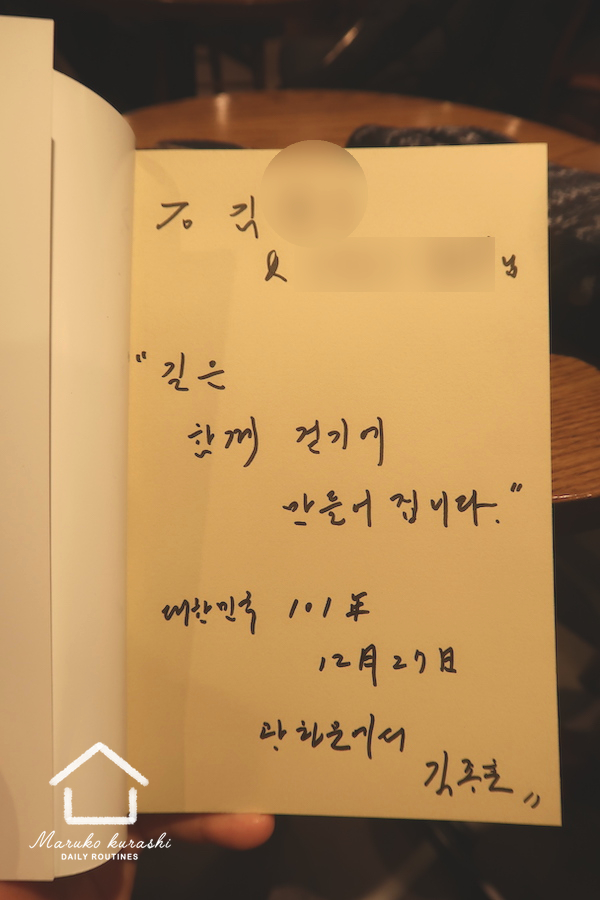 김
& 님
"길은
함께 걷기에
만들어 집니다."
대한민국 101年
12月 27日
광화문에서
김종훈 〃
Maruko kurashi
DAILY ROUTINES